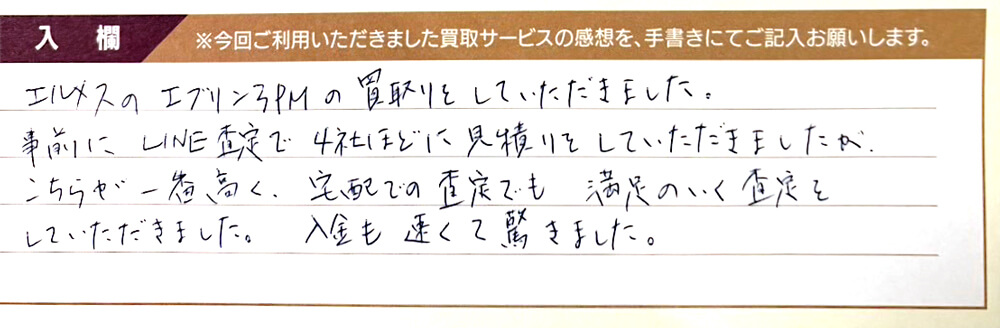 入 欄
※今回ご利用いただきました買取サービスの感想を、手書きにてご記入お願いします。
エルメスの エブリン3PMの 買取りをしていただきました。
事前に LINE査定で 4社ほどに 見積りをしていただきましたが、
こちらが 一番高く、宅配での 査定でも 満足のいく 査定を
していただきました。 入金も 速くて 驚きました。